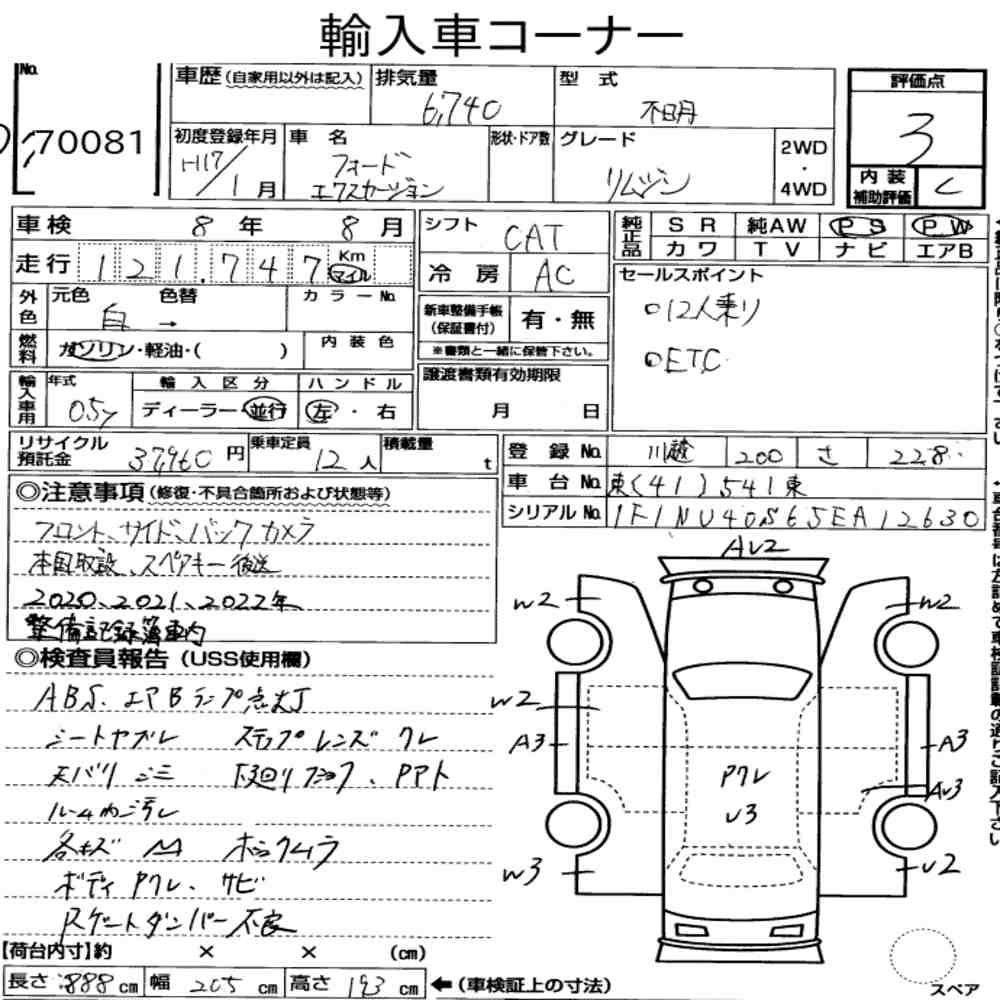 輸入車コーナー
No.
70081
車歴 (自家用以外は記入)
排気量
6,740
型 式
不明
評価点
3
初度登録年月
H17/1月
車 名
フォード
エクスカージョン
形状・ドア数
グレード
リムジン
2WD
・
4WD
内装
補助評価
C
車検 8 年 8 月
走行 121.747 Km マイル
外色
元色 色替
白 →
カラーNo.
燃料
ガソリン・軽油・( )
内装色
輸入車用
年式
05y
輸入区分
ディーラー・並行
ハンドル
左・右
シフト
CAT
冷房
AC
新車整備手帳
(保証書付)
有・無
※書類と一緒に保管下さい。
譲渡書類有効期限
月 日
純正品
SR 純AW PS PW
カワ TV ナビ エアB
セールスポイント
○12人乗り
○ETC
リサイクル
預託金
37,960円
乗車定員
12人
積載量
t
登録No. 川越 200 さ 228
車台No. 東(41)541東
シリアルNo. 1F1NU40S65EA12630
◎注意事項 (修復・不具合箇所および状態等)
フロント、サイド、バックカメラ
本国取説、スペアキー後送
2020、2021、2022年
整備記録簿車内
◎検査員報告 (USS使用欄)
ABS、エアBランプ点灯
シートヤブレ ステップレンズワレ
天バリシミ 下廻りフック、Pアト
ルーム内汚レ
各キズ M ボックムラ
ボディPワレ、サビ
Rゲートダンパー不良
【荷台内寸】約 × × (cm)
長さ 888 cm 幅 205 cm 高さ 193 cm ←(車検証上の寸法)
AU2
W2
W2
W2
A3
A3
AU3
Pワレ
U3
W3
U2
スペア